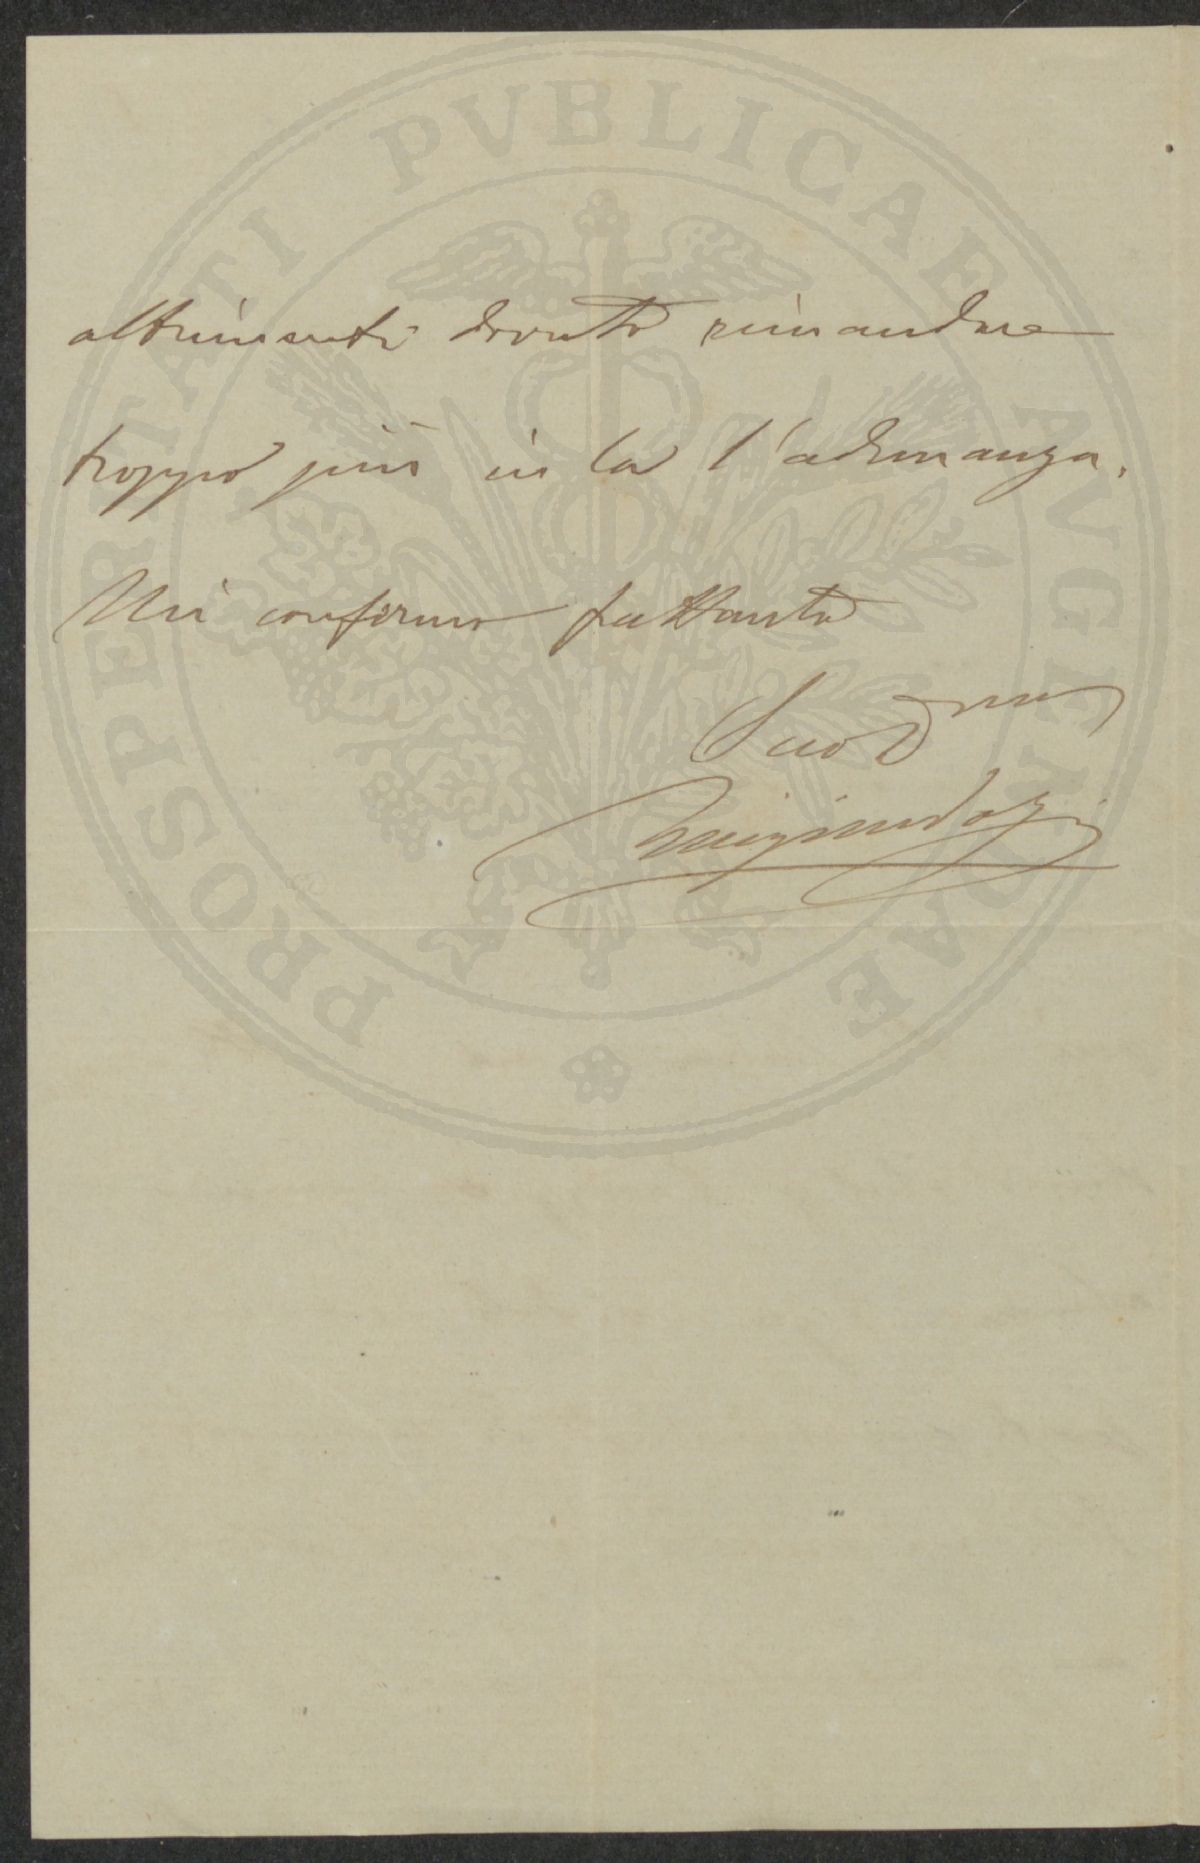 altrimenti dovuto rimandare
troppo più in là l'adunanza.
Mi confermo frattanto
Suo Dmo
PROSPERITATI PVBLICAE AVGENDAE